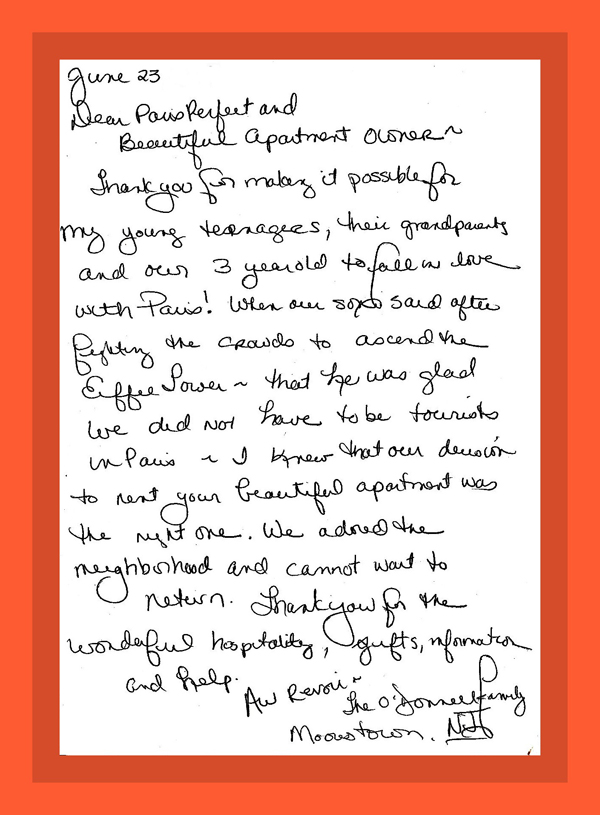 June 23
Dear ParisPerfect and
Beautiful Apartment Owner~
Thank you for making it possible for
my young teenagers, their grandparents
and our 3 year old to fall in love
with Paris! When our son said after
fighting the crowds to ascend the
Eiffel Tower ~ that he was glad
we did not have to be tourists
in Paris ~ I knew that our decision
to rent your beautiful apartment was
the right one. We adored the
neighborhood and cannot wait to
return. Thank you for the
wonderful hospitality, gifts, information
and help.
Au Revoir~
The O'Donnell family
Moorestown. NJ